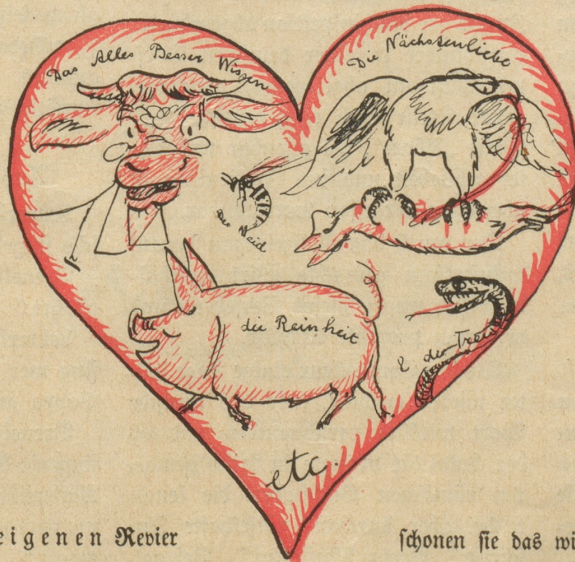 Das Alles Besser Wissen
Die Nächstenliebe
Der Neid
die Reinheit
& die Treue
etc.
eigenen Revier
schonen sie das wi